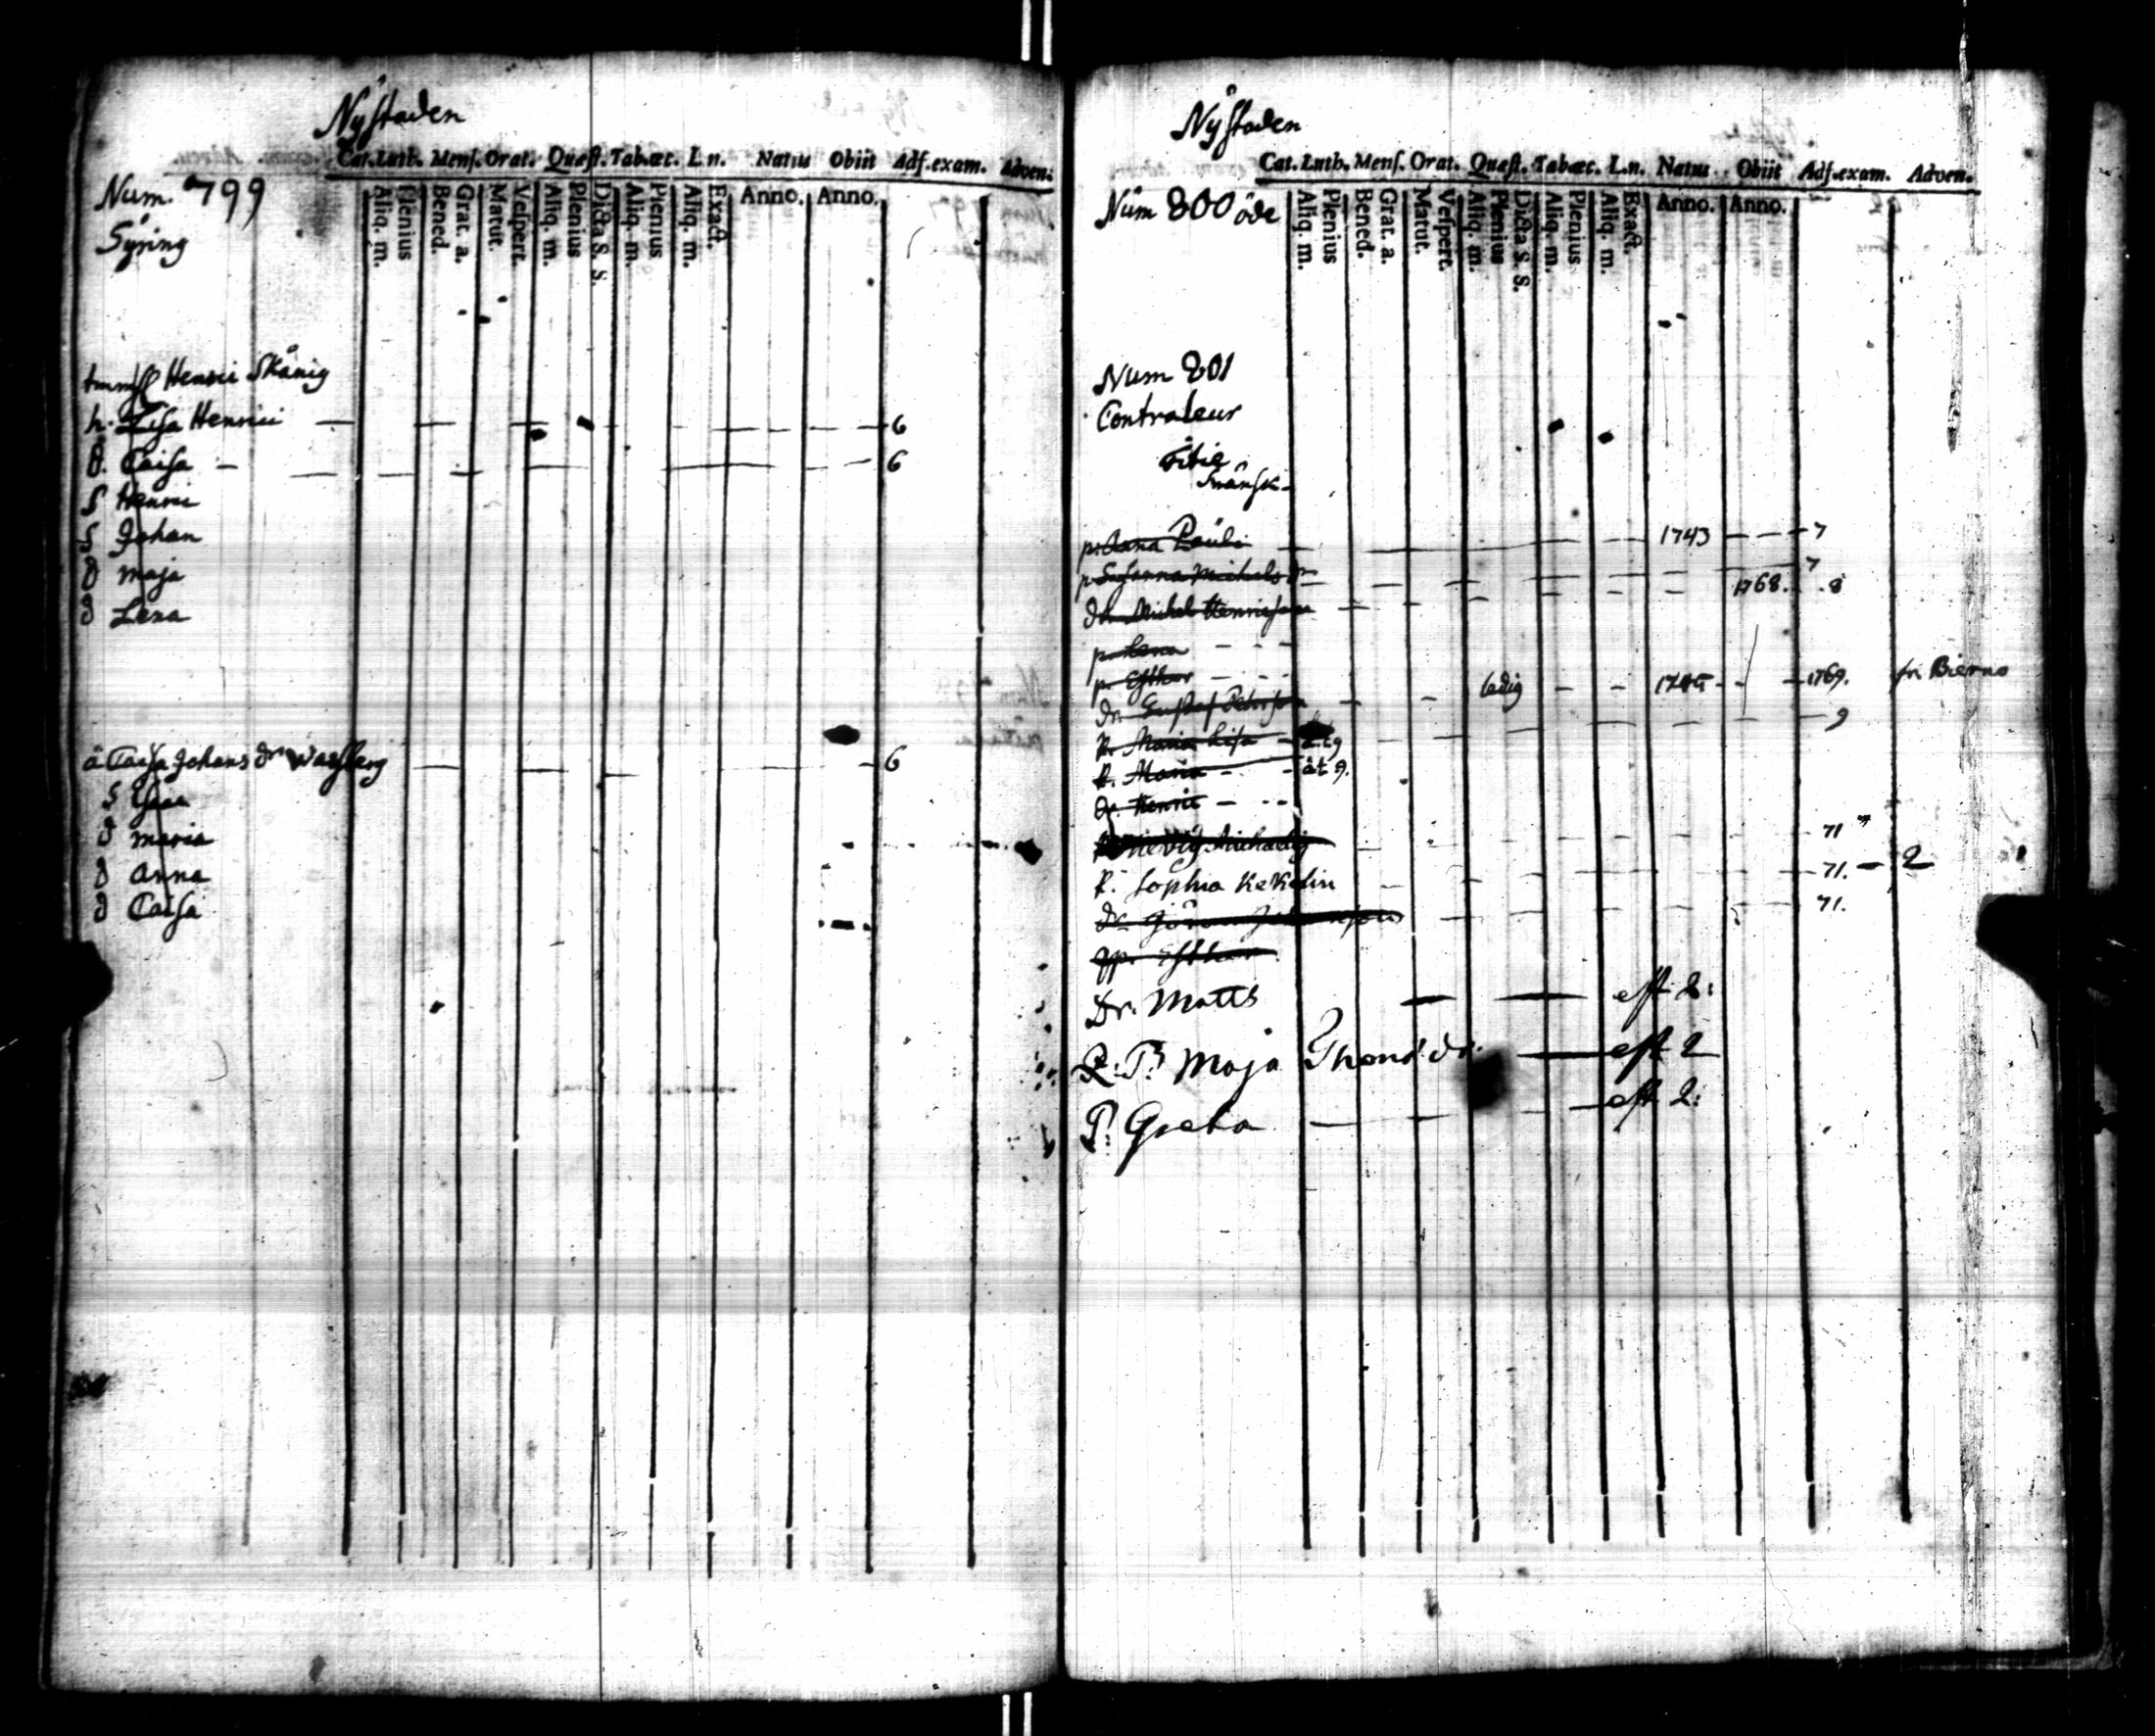 Nystaden
Cat. Luth. Mens. Orat. Quæst. Tabæc. L. n. Natus Obiit Adf. exam. Adven.
Num. 799
Aliq. m. Plenius Bened. Grat. a. Matut. Vespert. Aliq. m. Plenius Dicta S. S. Aliq. m. Plenius Aliq. m. Exact. Anno. Anno.
Syring
Henric Skånig
h. Lisa Henrici 6
d. Caisa 6
S Henric
S Johan
d Maja
d Lena
Caisa Johans dr 6
d Maria
d Anna
d Caisa
Nystaden
Cat. Luth. Mens. Orat. Quæst. Tabæc. L. n. Natus Obiit Adf. exam. Adven.
Num 800 öde
Aliq. m. Plenius Bened. Grat. a. Matut. Vespert. Aliq. m. Plenius Dicta S. S. Aliq. m. Plenius Aliq. m. Exact. Anno. Anno.
Num 801
Contraleur
p. Anna Pauli 1743 7
p. Susanna Michels dr 7
dr. Michel Henricsson 1768. 8
p. Lena
p. Esther
dr. Gustaf Petersson ledig 1769. fr. Bierno
p. Maria Lisa 9
p. Maria åt 9.
dr. Henric
Hedvig Michaelis 71
p. Sophia Kekelin 71. - 2
dr. Göran Johansson 71.
pp. Esther
Dr. Matts eft 2:
P: Maja Thomæ dr. eft 2
P: Greta eft 2: